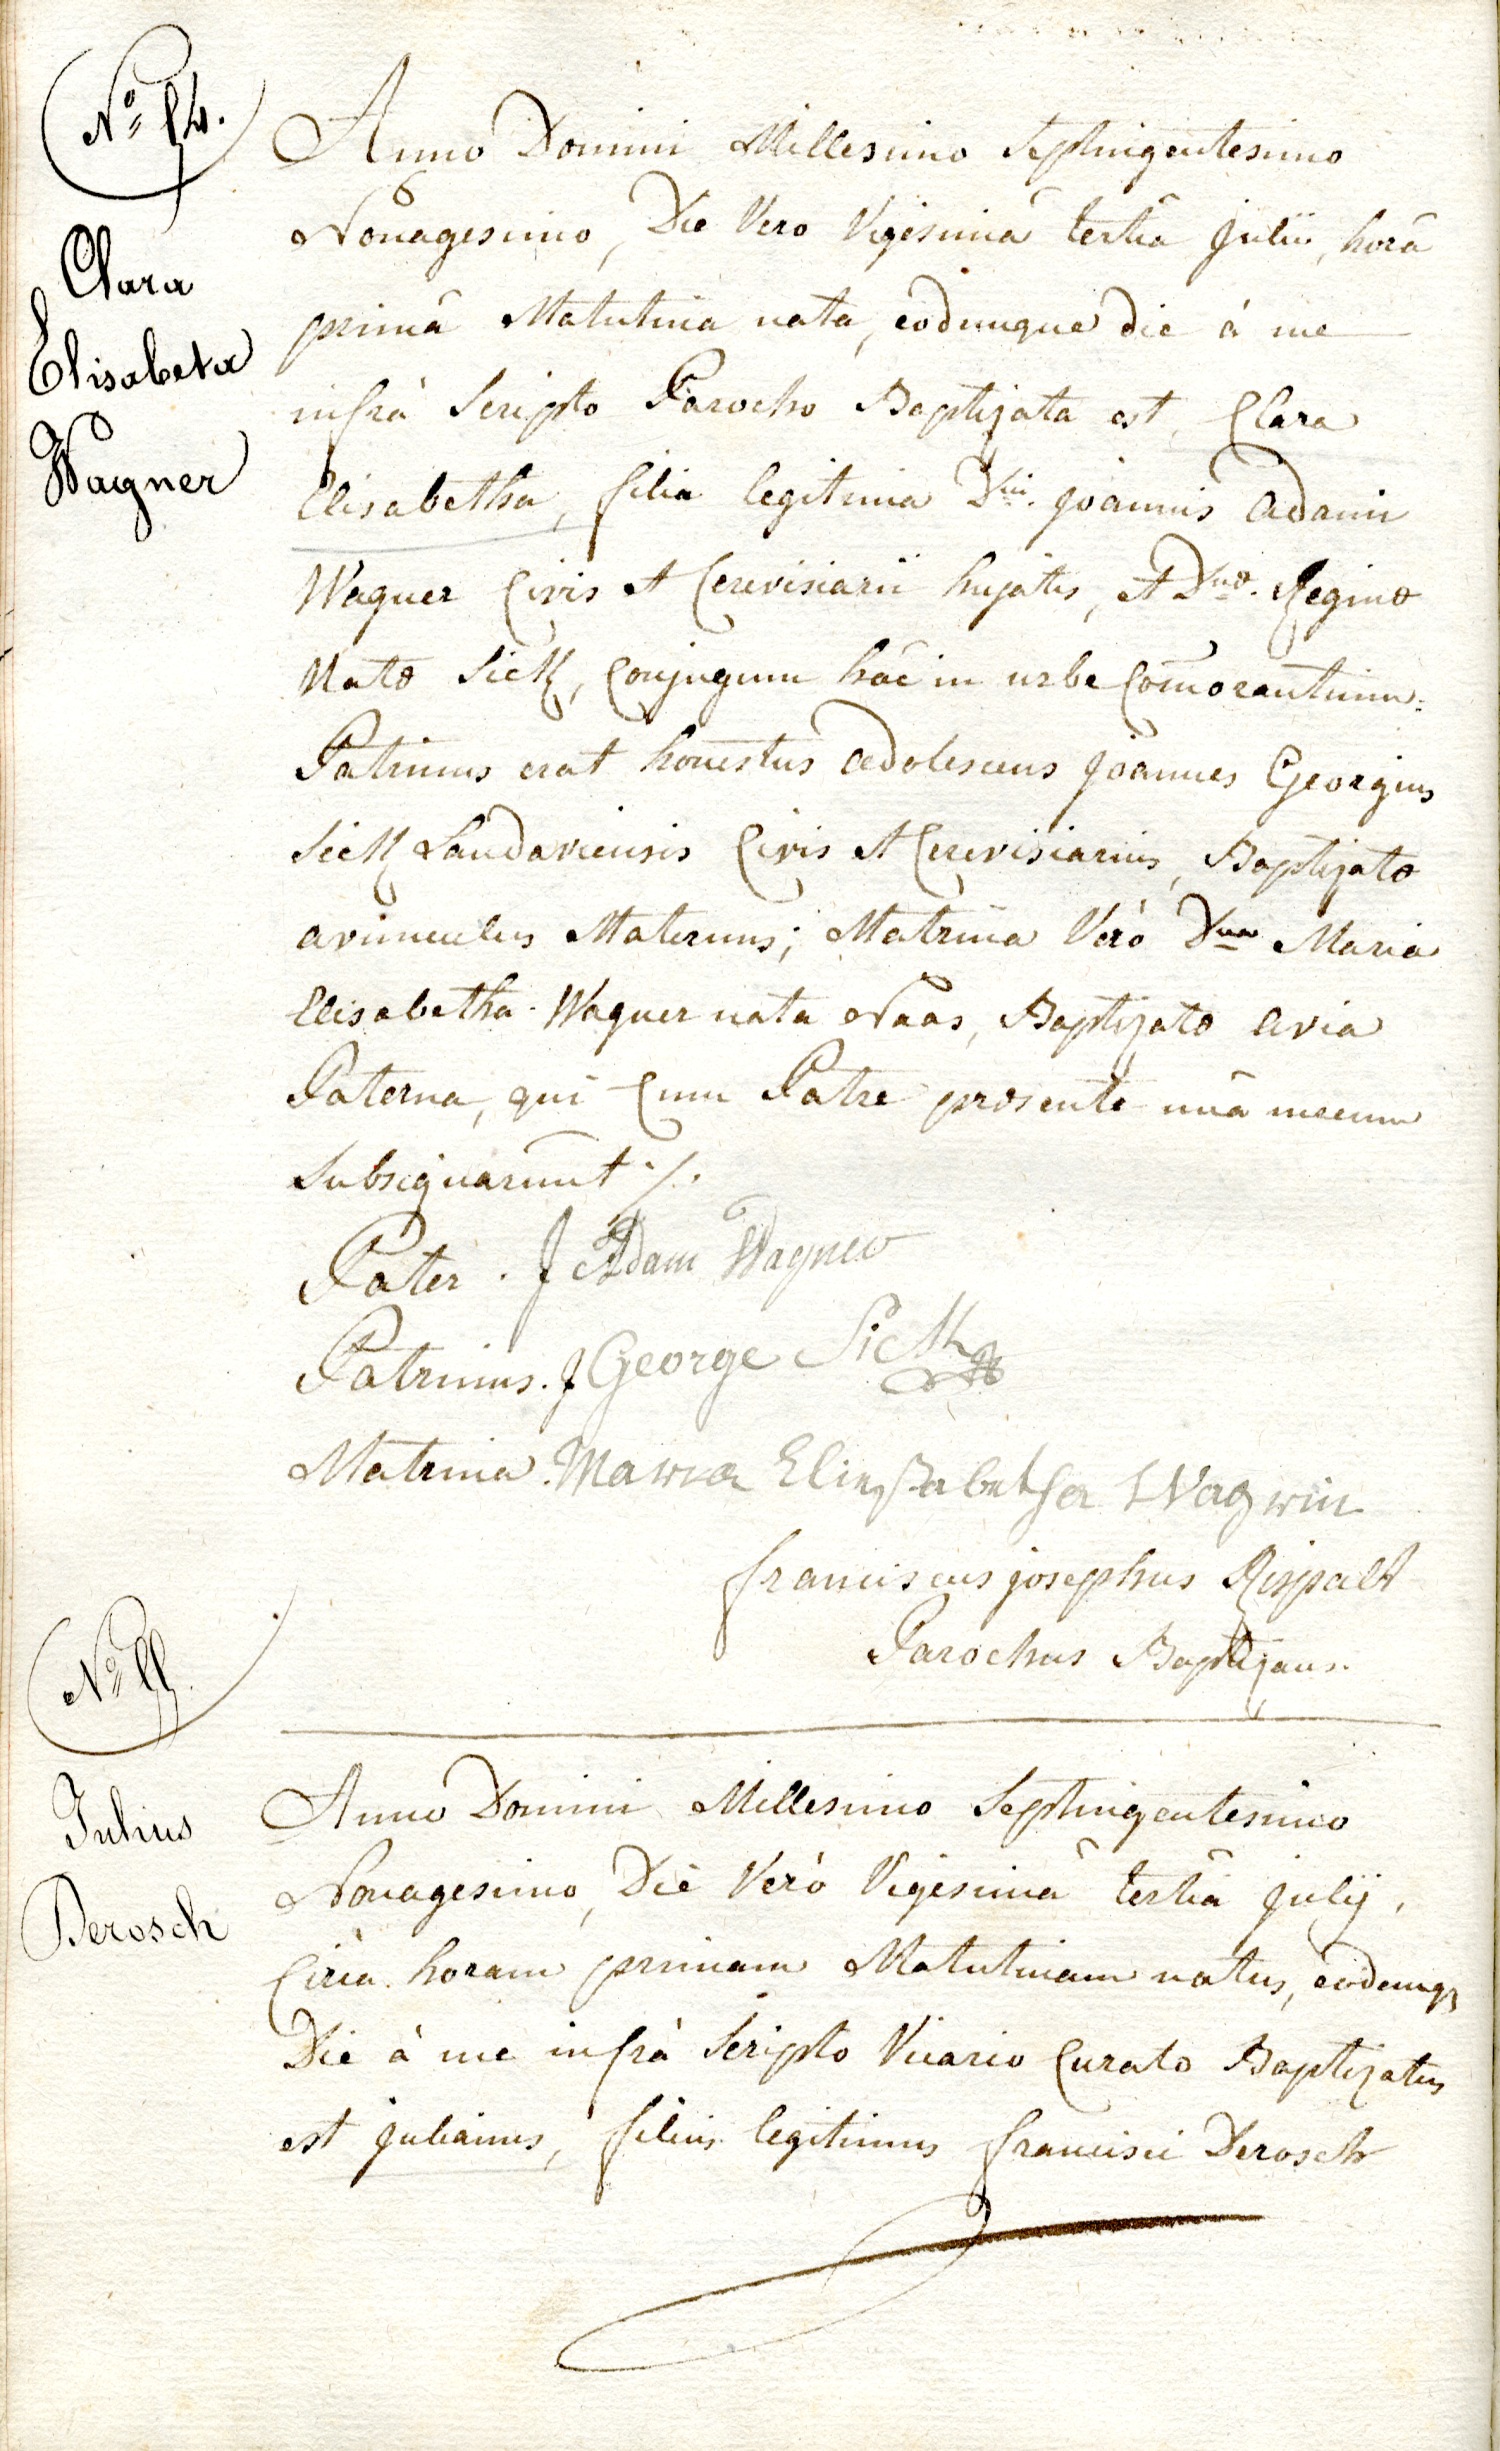 No 54.
Clara
Elisabeta
Wagner
Anno Domini Millesimo Septingentesimo
Nonagesimo, Die Vero Vigesimâ tertiâ julii, horâ
primâ Matutina nata, eodemque die à me
infrà Scripto Parocho Baptizata est, Clara
Elisabetha, filia legitima Dni. joannis Adami
Wagner Civis et Cerevisiarii hujatis, et Dnæ. Reginæ
Natæ Sick, Conjugum hâc in urbe Com̄orantium.
Patrinus erat honestus adolescens joannes Georgius
Sick Landaviensis Civis et Cerevisiarius, Baptizatæ
avunculus Maternus; Matrina Verò Dna Maria
Elisabetha Wagner nata Naas, Baptizatæ avia
Paterna, qui Cum Patre præsente unâ mecum
Subsignarunt ./.
Pater . J Adam Wagner
Patrinus. J George Sick
Matrina. Maria Wagnerin
franciscus josephus Rispalt
Parochus Baptizans.
No 55.
Julius
Derosch
Anno Domini Millesimo Septingentesimo
Nonagesimo, Die Verò Vigesimâ tertiâ julij,
Circa horam primam Matutinam natus, eodemq
Die à me infrà Scripto Vicario Curato Baptizatus
est julianus, filius legitimus francisci Derosch